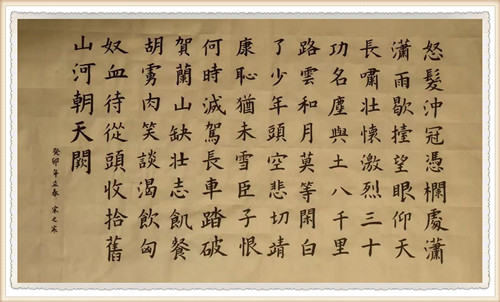 怒髮沖冠憑欄處瀟
瀟雨歇擡望眼仰天
長嘯壯懷激烈三十
功名塵與土八千里
路雲和月莫等閑白
了少年頭空悲切靖
康恥猶未雪臣子恨
何時滅駕長車踏破
賀蘭山缺壯志飢餐
胡虜肉笑談渴飲匈
奴血待從頭收拾舊
山河朝天闕
癸卯年立春